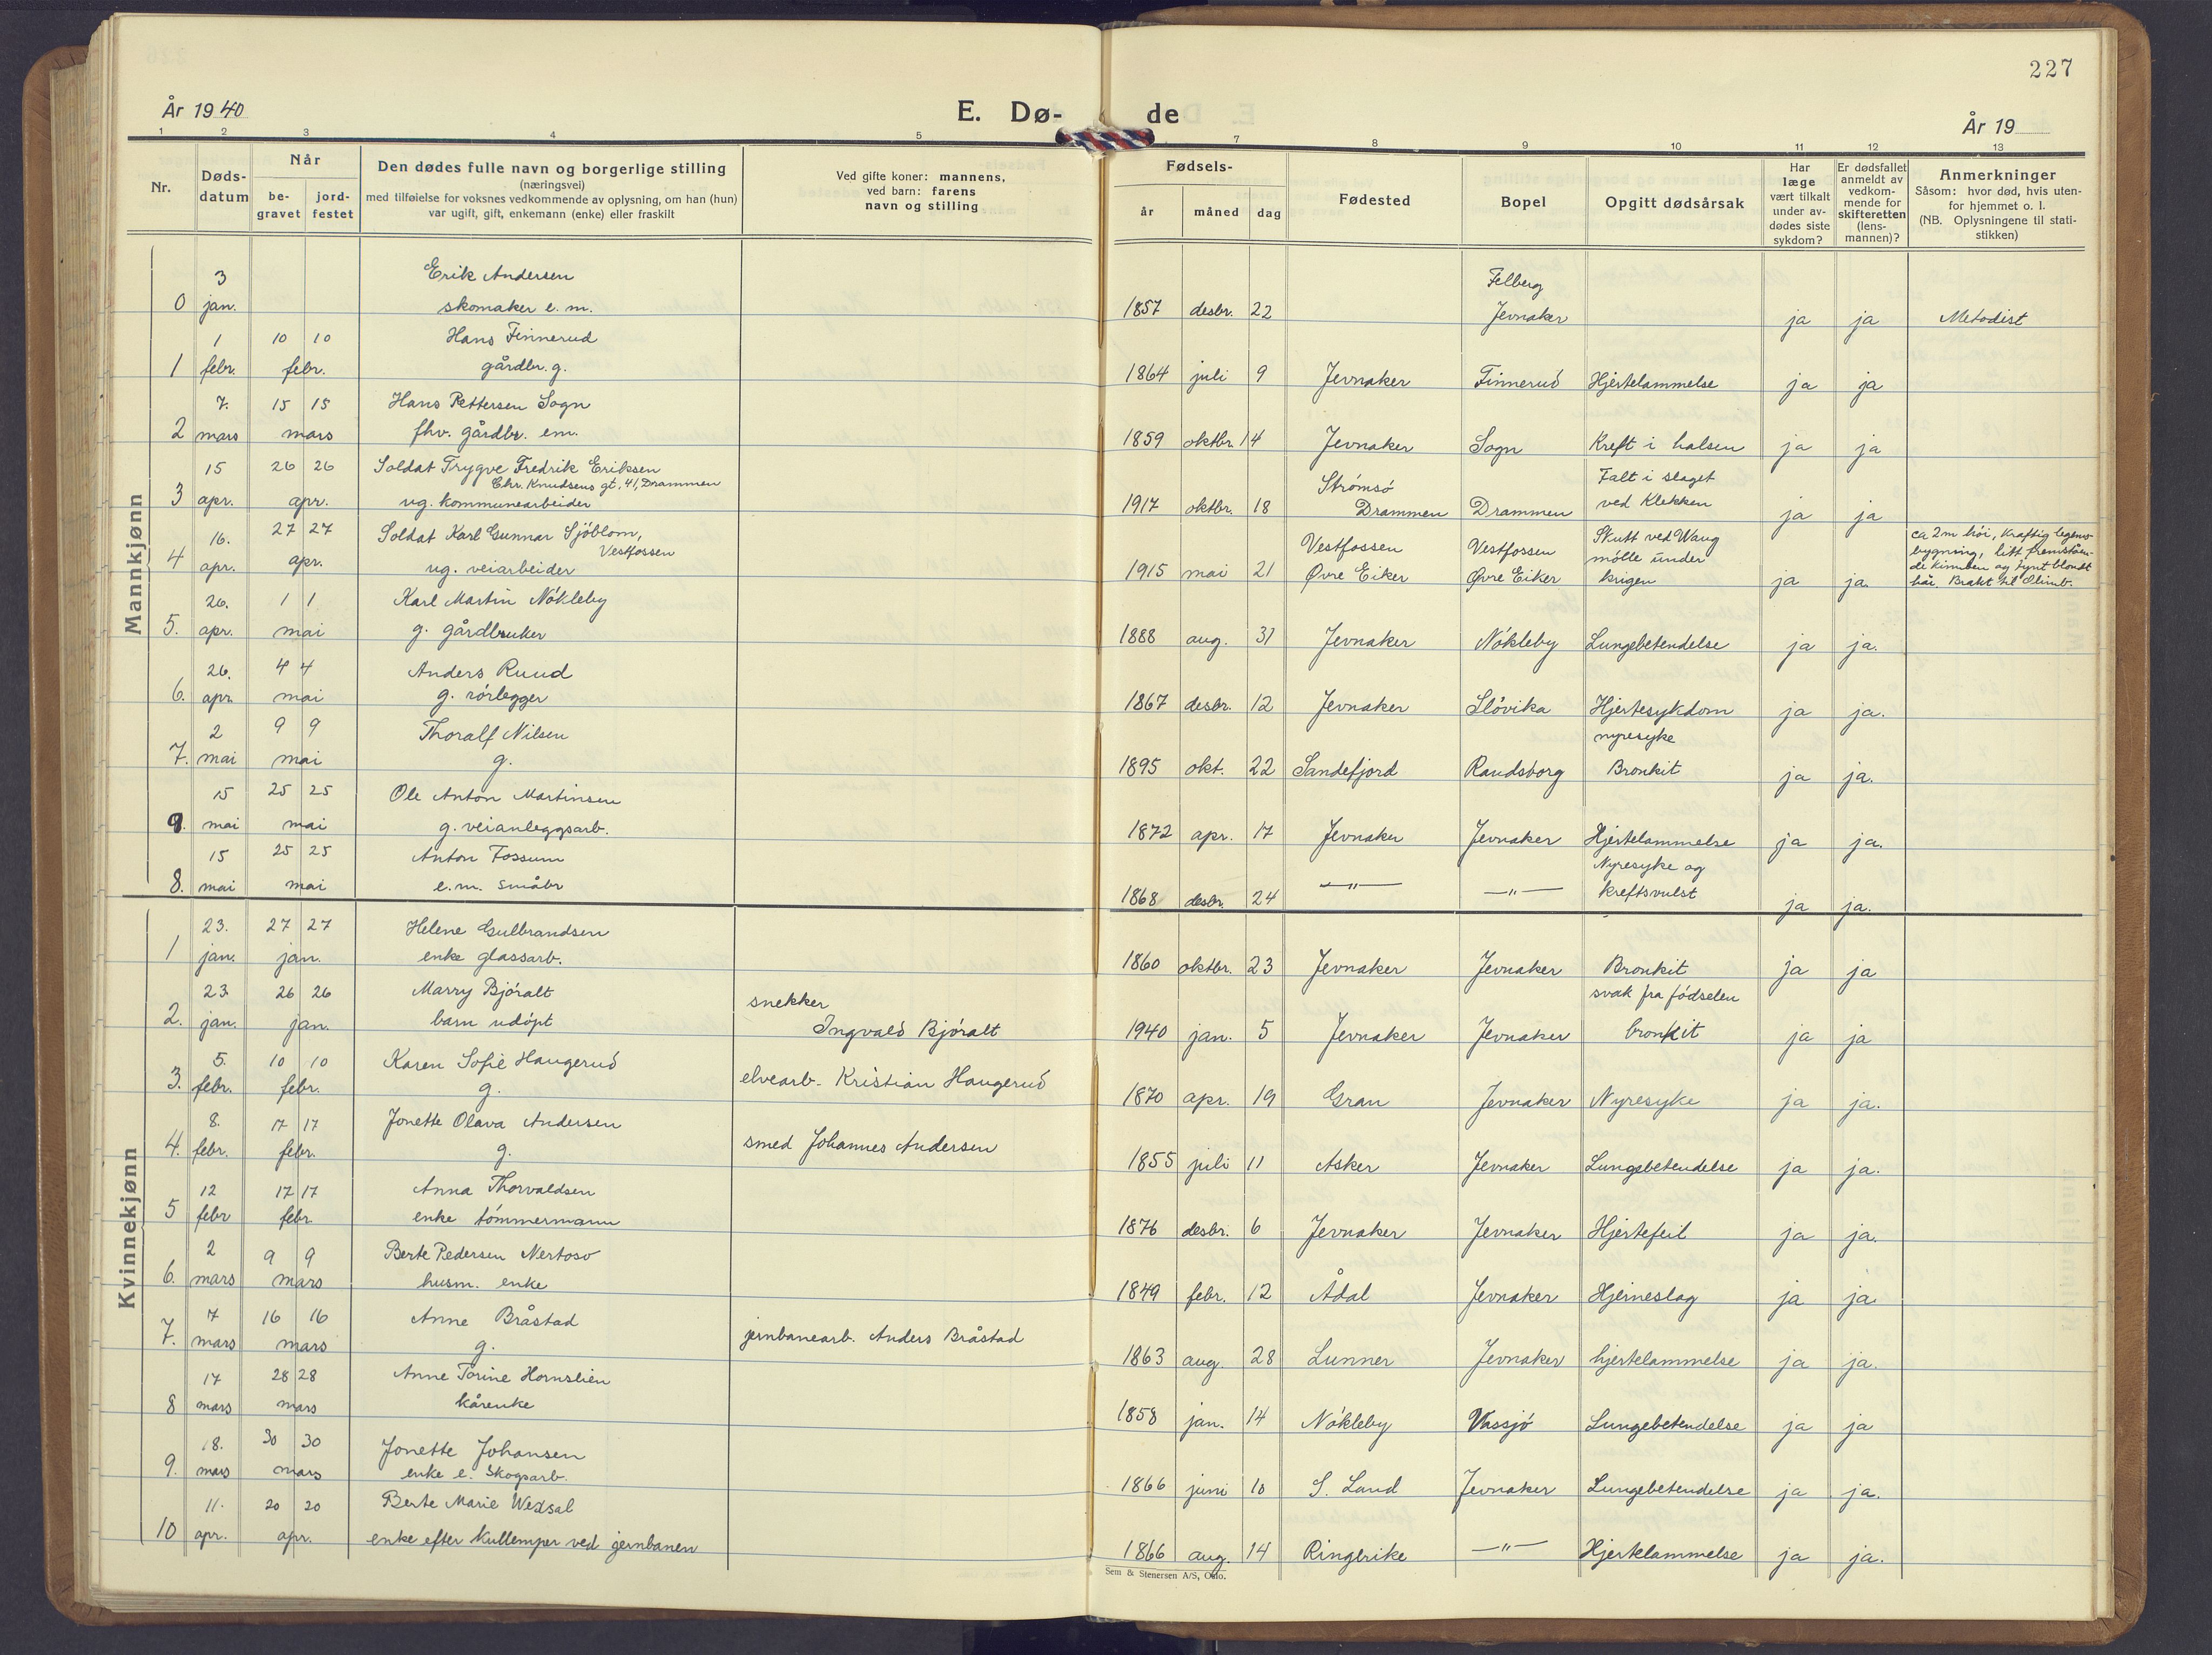 227
År 1940
E. Dø-
de
År 19
1 2 3 4 5
7 8 9 10 11 12 13
Nr.
Døds-
datum
Når
be-
gravet
jord-
festet
Den dødes fulle navn og borgerlige stilling
(næringsvei)
med tilføielse for voksnes vedkommende av oplysning, om han (hun)
var ugift, gift, enkemann (enke) eller fraskilt
Ved gifte koner: mannens,
ved barn: farens
navn og stilling
Fødsels-
år måned dag
Fødested
Bopel
Opgitt dødsårsak
Har
læge
vært tilkalt
under av-
dødes siste
sykdom?
Er dødsfallet
anmeldt av
vedkom-
mende for
skifteretten
(lens-
mannen)?
Anmerkninger
Såsom: hvor død, hvis uten-
for hjemmet o. l.
(NB. Oplysningene til stati-
stikken)
Mannkjønn
3 Erik Andersen Felberg
0 jan. skomaker e. m. 1857 desbr. 22 Jevnaker ja ja Metodist
1 10 10 Hans Finnerud
1 febr. febr. gårdbr. g. 1864 juli 9 Jevnaker Finnerud Hjertelammelse ja ja
7. 15 15 Hans Pettersen Sogn
2 mars mars fhv. gårdbr. em. 1859 oktbr. 14 Jevnaker Sogn Kreft i halsen ja ja
15 26 26 Soldat Trygve Fredrik Eriksen Strømsö Falt i slaget
Chr. Knudsens gt. 41, Drammen
3 apr. apr. ug. kommunearbeider 1917 oktbr. 18 Drammen Drammen ved Klekken ja ja
16. 27 27 Soldat Karl Gunnar Sjöblom, Vestfossen Vestfossen Skutt ved Waug ca 2m höi, kraftig legems-
Vestfossen mölle under bygning, litt fremståen-
4 apr. apr. ug. veiarbeider 1915 mai 21 Øvre Eiker Øvre Eiker krigen ja ja. de kinnben og tynt blondt
hår. Brakt til
26. 1 1 Karl Martin Nökleby
5. apr. mai g. gårdbruker 1888 aug. 31 Jevnaker Nökleby Lungebetendelse ja ja.
26. 4 4 Anders Ruud
6. apr. mai g. rörlegger 1867 desbr. 12 Jevnaker Slövika Hjertesykdom ja ja.
2 9 9 Thoralf Nilsen nyresyke
7. mai mai g. 1895 okt. 22 Sandefjord Randsborg Bronkit ja ja.
15 25 25 Ole Anton Martinsen
9. mai mai g. veianleggsarb. 1872 apr. 17 Jevnaker Jevnaker Hjertelammelse ja ja.
15 25 25 Anton Fossum Nyresyke og
8. mai mai e.m. småbr 1868 desbr. 24 —"— —"— kreftsvulst ja ja.
Kvinnekjønn
23. 27 27 Helene Gulbrandsen
1 jan. jan. enke glassarb. 1860 oktbr. 23 Jevnaker Jevnaker Bronkit ja ja
23 26 26 Marry Björalt snekker svak fra födselen
2. jan. jan. barn udöpt Ingvald Björalt 1940 jan. 5 Jevnaker Jevnaker bronkit ja ja
5. 10 10 Karen Sofie Haugerud
3. febr. febr. g. elvearb. Kristian Haugerud 1870 apr. 19 Gran Jevnaker Nyresyke ja ja.
8. 17 17 Jonette Olava Andersen
4. febr. febr. g. smed Johannes Andersen 1855 juli 11 Asker Jevnaker Lungebetendelse ja ja.
12 17 17 Anna Thorvaldsen
5 febr febr. enke tömmermann 1876 desbr. 6 Jevnaker Jevnaker Hjertefeil ja ja.
2 9 9 Berte Pedersen Nertoso
6. mars mars husm. enke 1849 febr. 12 Ådal Jevnaker Hjerneslag ja ja.
7 16 16 Anne Bråstad
7. mars mars g. jernbanearb. Anders Bråstad 1863 aug. 28 Lunner Jevnaker hjertelammelse ja ja.
17 28 28 Anne Torine Hornslien
8 mars mars kårenke 1858 jan. 14 Nökleby Vassjö Lungebetendelse ja ja
18. 30 30 Jonette Johansen
9. mars mars enke e. Skogsarb. 1866 juni 10 S. Land Jevnaker Lungebetendelse ja ja.
11. 20 20 Berte Marie Wexsal
10 apr. apr. enke efter kullemper ved jernbanen 1866 aug. 14 Ringerike —"— Hjertelammelse ja ja.
Sem & Stenersen A/S, Oslo.